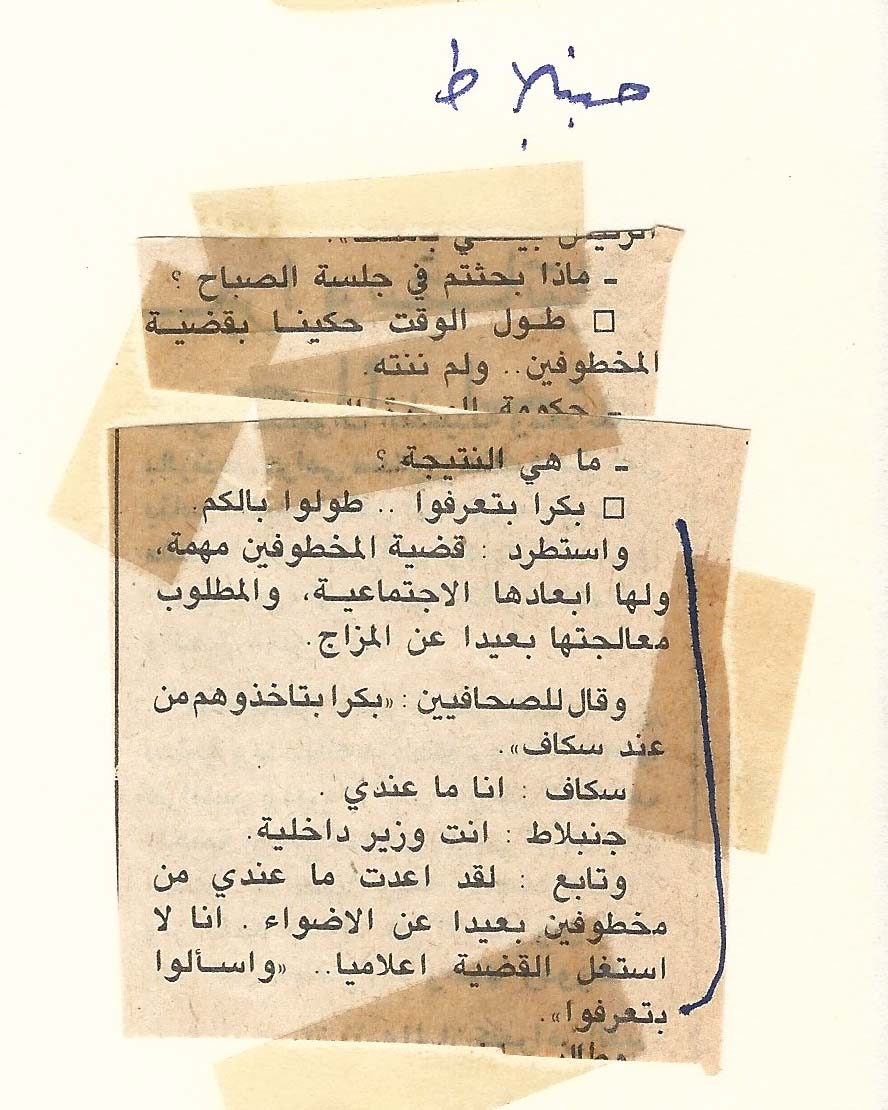 جنبلاط
- ماذا بحثتم في جلسة الصباح ؟
□ طول الوقت حكينا بقضية
المخطوفين.. ولم ننته.
- حكومة
- ما هي النتيجة ؟
□ بكرا بتعرفوا .. طولوا بالكم.
واستطرد : قضية المخطوفين مهمة،
ولها ابعادها الاجتماعية، والمطلوب
معالجتها بعيدا عن المزاج.
وقال للصحافيين : «بكرا بتاخذوهم من
عند سكاف».
سكاف : انا ما عندي .
جنبلاط : انت وزير داخلية.
وتابع : لقد اعدت ما عندي من
مخطوفين بعيدا عن الاضواء . انا لا
استغل القضية اعلاميا.. «واسألوا
بتعرفوا».